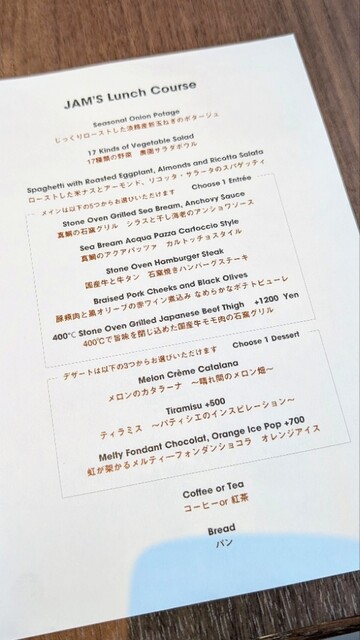 JAM'S Lunch Course
Seasonal Onion Potage
じっくりローストした淡路産新玉ねぎのポタージュ
17 Kinds of Vegetable Salad
17種類の野菜 農園サラダボウル
Spaghetti with Roasted Eggplant, Almonds and Ricotta Salata
ローストした米ナスとアーモンド、リコッタ・サラータのスパゲッティ
メインは以下の5つからお選びいただけます Choose 1 Entrée
Stone Oven Grilled Sea Bream, Anchovy Sauce
真鯛の石窯グリル シラスと干し海老のアンショワソース
Sea Bream Acqua Pazza Cartoccio Style
真鯛のアクアパッツァ カルトッチョスタイル
Stone Oven Hamburger Steak
国産牛と牛タン 石窯焼きハンバーグステーキ
Braised Pork Cheeks and Black Olives
豚頬肉と黒オリーブの赤ワイン煮込み なめらかなポテトピューレ
400℃ Stone Oven Grilled Japanese Beef Thigh +1200 Yen
400℃で旨味を閉じ込めた国産牛モモ肉の石窯グリル
デザートは以下の3つからお選びいただけます Choose 1 Dessert
Melon Crème Catalana
メロンのカタラーナ ～晴れ間のメロン畑～
Tiramisu +500
ティラミス ～パティシエのインスピレーション～
Melty Fondant Chocolat, Orange Ice Pop +700
虹が架かるメルティーフォンダンショコラ オレンジアイス
Coffee or Tea
コーヒーor 紅茶
Bread
パン